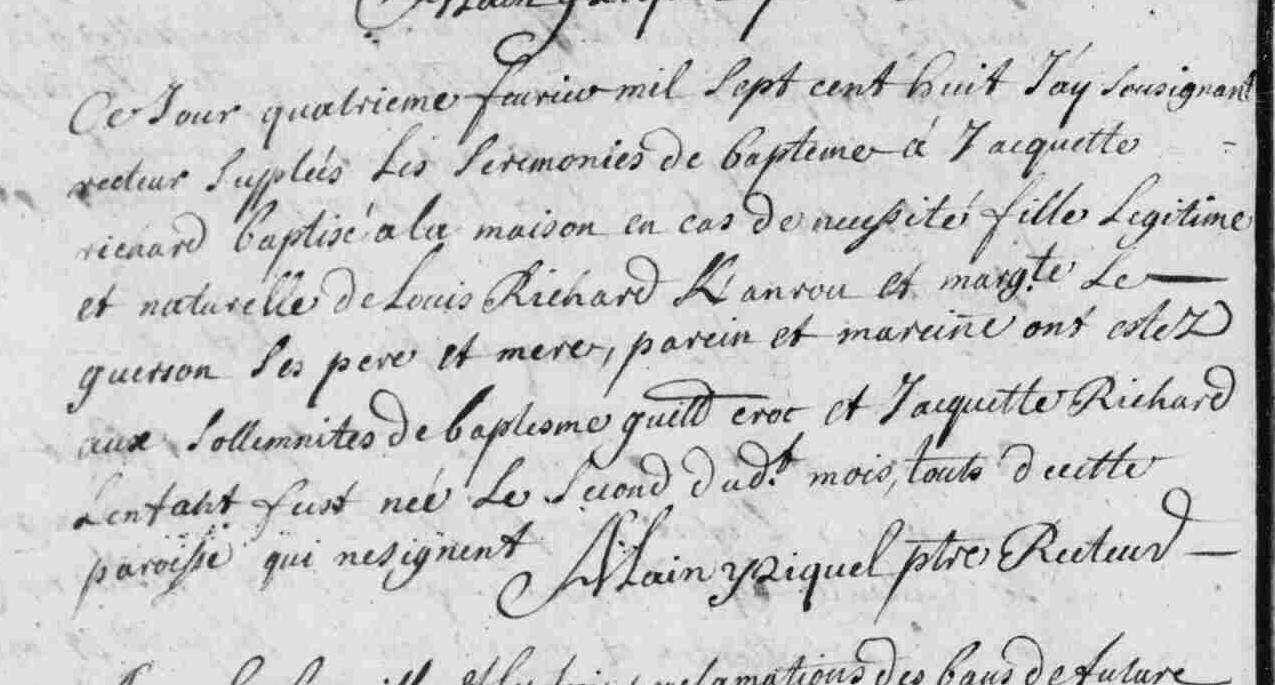 Ce Jour quatrieme fevrier mil Sept cent huit J'ay Sousignant
recteur Supleés Les Seremonies de bapteme á Jacquette
richard baptisé a la maison en cas de necessité fille Legitime
et naturelle de Louis Richard et marg.te Le
guerson Ses pere et mere, parein et mareine ont estez
aux Sollemnites de baptesme guill croc et Jacquette Richard
L'enfant fust née Le Second dud.t mois, touts de cette
paroisse qui ne signent Alain yziquel ptre Recteur
reclamations des bans de future